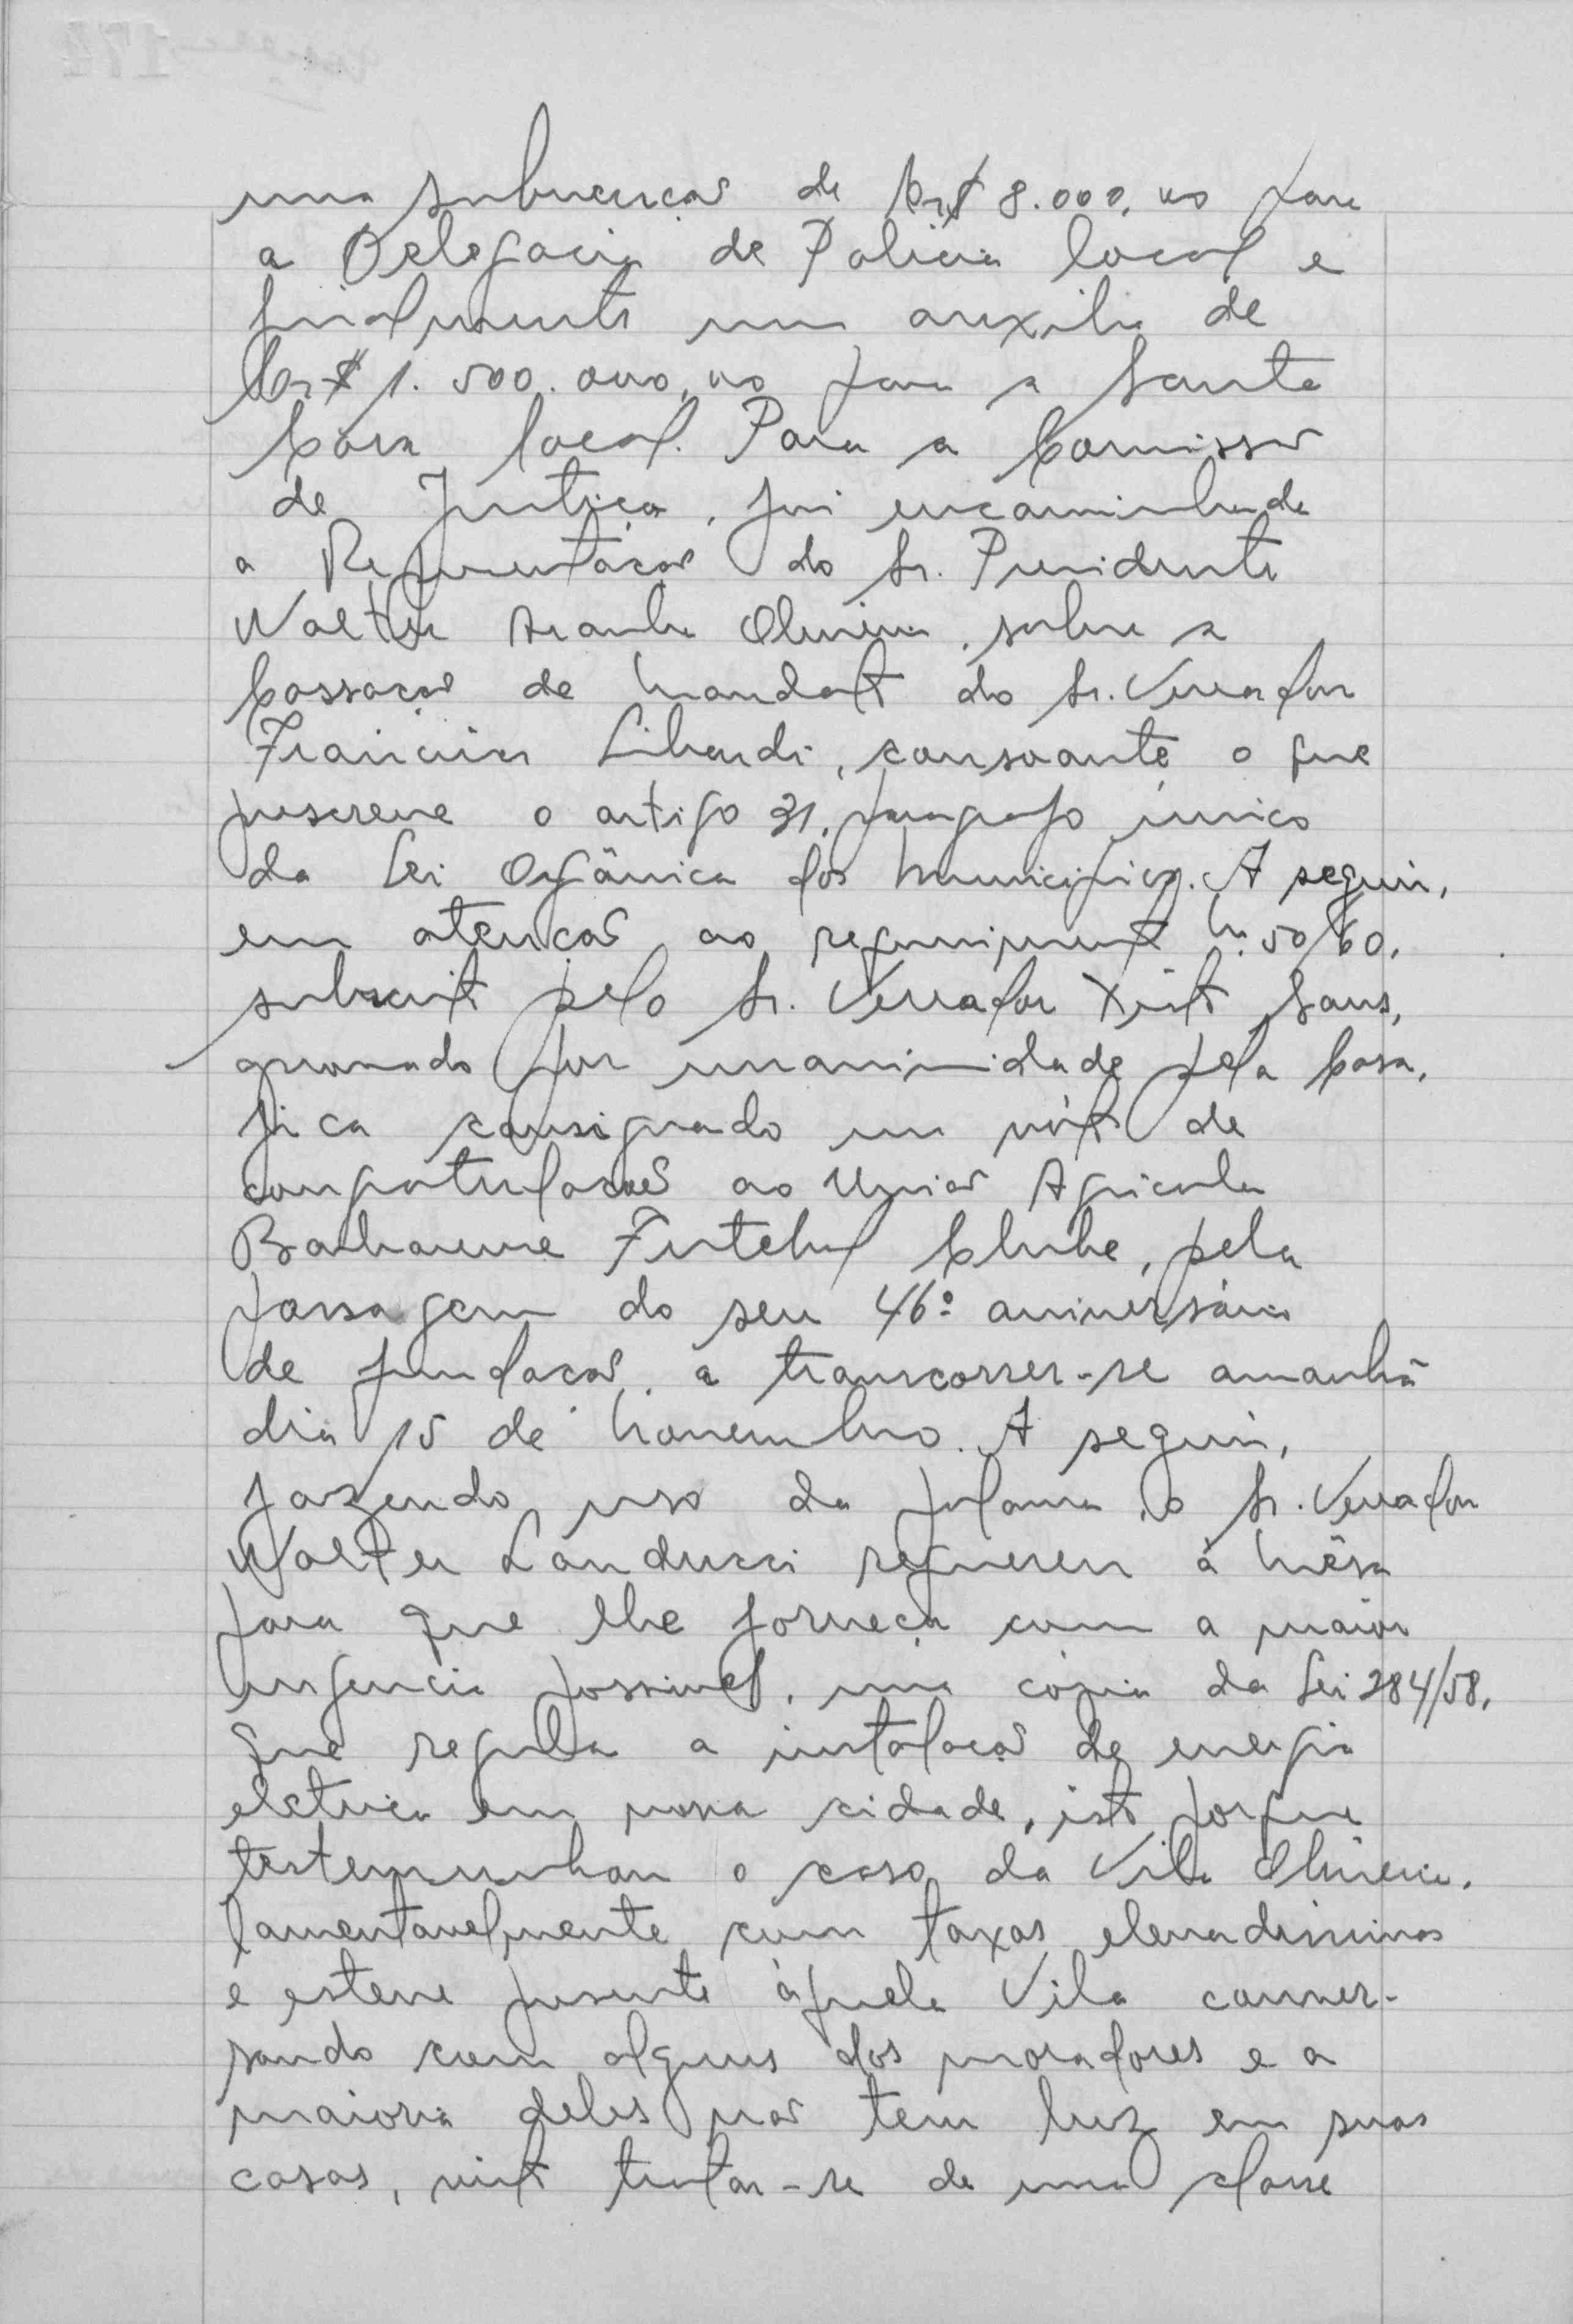 uma subvenção de Cr$ 8.000,00 para
a Delegacia de Policia local e
finalmente um auxilio de
Cr$ 1.500.000,00 para a Santa
Casa local. Para a Comissão
de Justiça, foi encaminhada
a Representação do Sr. Presidente
Walter Aranha Oliveira, sobre a
Cassação de Mandato do Sr. Vereador
Francisco Libardi, consoante o que
prescreve o artigo 31, paragrafo único
da Lei Orgânica dos Municipios. A seguir,
em atenção ao requerimento n. 50/60,
subscrito pelo Sr. Vereador Xisto Sans,
aprovado por unanimidade pela Casa,
fica consignado um vóto de
congratulações ao União Agricola
Barbarense Futebol Clube, pela
passagem do seu 46º aniversário
de fundação, a transcorrer-se amanhã
dia 15 de Novembro. A seguir,
fazendo uso da palavra, o Sr. Vereador
Walter Landucci requereu à Mêsa
para que lhe forneça com a maior
urgencia possivel, uma cópia da Lei 284/58,
que regula a instalação de energia
eletrica em nossa cidade, isto porque
testemunhou o caso da Vila Oliveira,
lamentavelmente com taxas elevadissimas
e esteve presente àquela Vila conver-
sando com alguns dos moradores e a
maioria deles não tem luz em suas
casas, visto tratar-se de uma classe